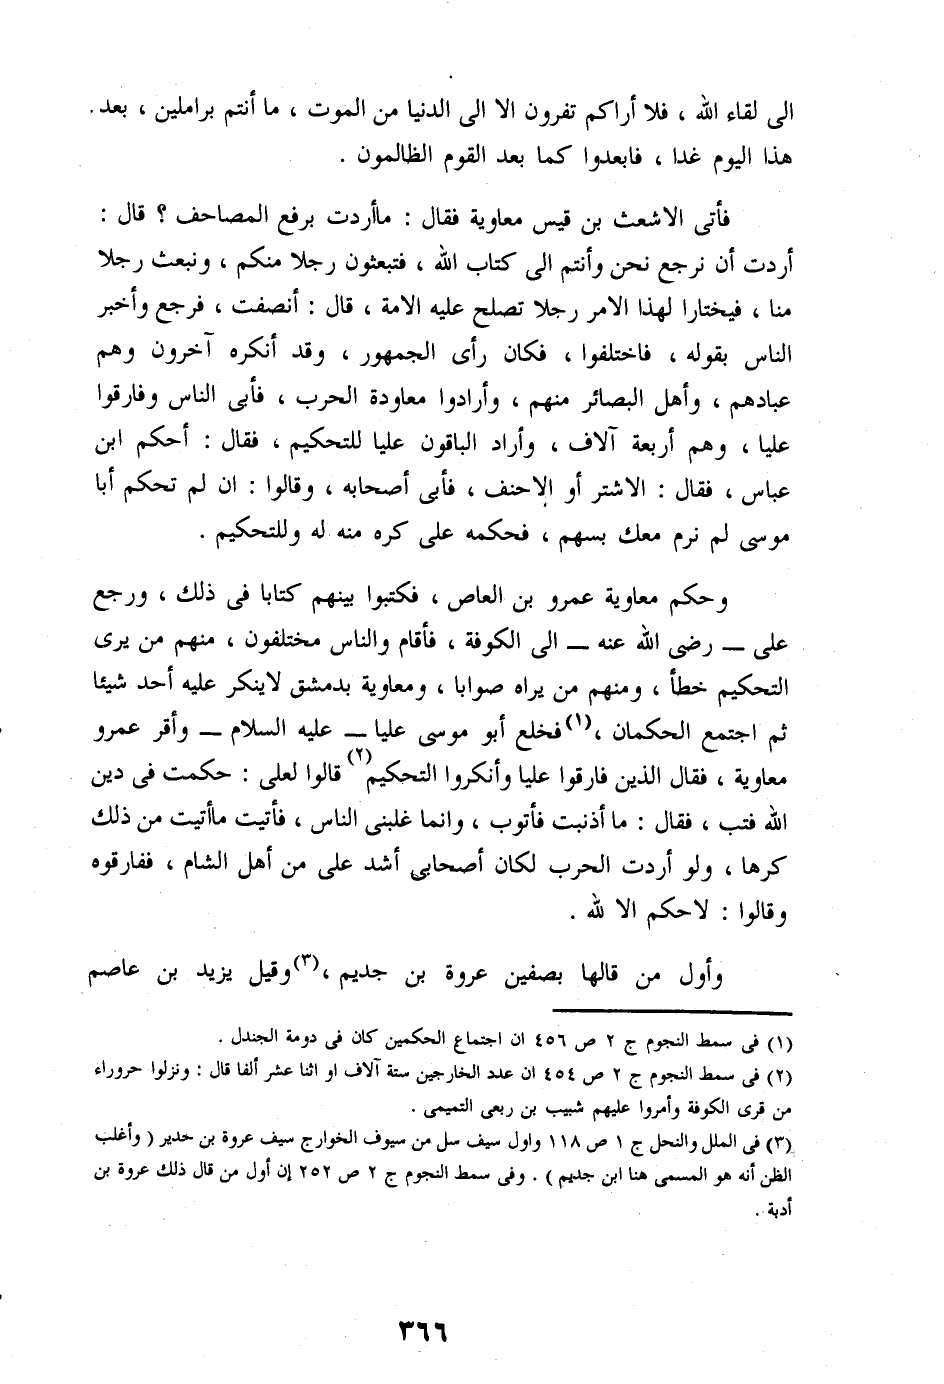 الى لقاء الله ، فلا أراكم تفرون الا الى الدنيا من الموت ، ما أنتم براملين ، بعد .
هذا اليوم غدا ، فابعدوا كما بعد القوم الظالمون .
فأتى الاشعث بن قيس معاوية فقال : ماأردت برفع المصاحف ؟ قال :
أردت أن نرجع نحن وأنتم الى كتاب الله ، فتبعثون رجلا منكم ، ونبعث رجلا
منا ، فيختارا لهذا الامر رجلا تصلح عليه الامة ، قال : أنصفت ، فرجع وأخبر
الناس بقوله ، فاختلفوا ، فكان رأى الجمهور ، وقد أنكره آخرون وهم
عبادهم ، وأهل البصائر منهم ، وأرادوا معاودة الحرب ، فأبى الناس وفارقوا
عليا ، وهم أربعة آلاف ، وأراد الباقون عليا للتحكيم ، فقال : أحكم ابن
عباس ، فقال : الاشتر أو الاحنف ، فأبى أصحابه ، وقالوا : ان لم تحكم أبا
موسى لم نرم معك بسهم ، فحكمه على كره منه له وللتحكيم .
وحكم معاوية عمرو بن العاص ، فكتبوا بينهم كتابا فى ذلك ، ورجع
على ــ رضى الله عنه ــ الى الكوفة ، فأقام والناس مختلفون ، منهم من يرى
التحكيم خطأ ، ومنهم من يراه صوابا ، ومعاوية بدمشق لاينكر عليه أحد شيئا
ثم اجتمع الحكمان ،(١) فخلع أبو موسى عليا ــ عليه السلام ــ وأقر عمرو
معاوية ، فقال الذين فارقوا عليا وأنكروا التحكيم(٢) قالوا لعلى : حكمت فى دين
الله فتب ، فقال : ما أذنبت فأتوب ، وانما غلبنى الناس ، فأتيت ماأتيت من ذلك
كرها ، ولو أردت الحرب لكان أصحابى أشد على من أهل الشام ، ففارقوه
وقالوا : لاحكم الا لله .
وأول من قالها بصفين عروة بن جديم ،(٣) وقيل يزيد بن عاصم
(١) فى سمط النجوم ج ٢ ص ٤٥٦ ان اجتماع الحكمين كان فى دومة الجندل .
(٢) فى سمط النجوم ج ٢ ص ٤٥٤ ان عدد الخارجين ستة آلاف او اثنا عشر ألفا قال : ونزلوا حروراء
من قرى الكوفة وأمروا عليهم شبيب بن ربعى التميمى .
(٣) فى الملل والنحل ج ١ ص ١١٨ واول سيف سل من سيوف الخوارج سيف عروة بن حدير ( وأغلب
الظن أنه هو المسمى هنا ابن جديم ) . وفى سمط النجوم ج ٢ ص ٢٥٢ إن أول من قال ذلك عروة بن
أدبة .
٣٦٦